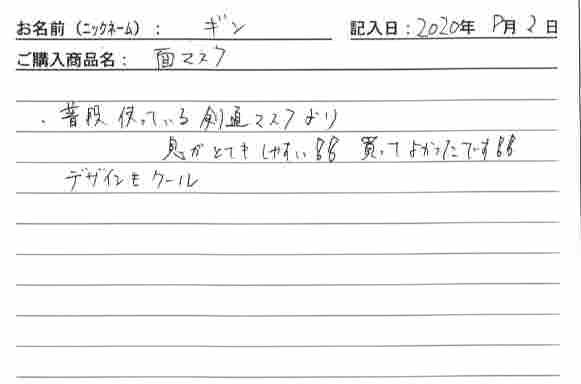 お名前（ニックネーム）： ギン 記入日：2020年 8月 2日
ご購入商品名： 面マスク
・普段使っている剣道マスクより
息がとてもしやすい!! 買ってよかったです!!
デザインもクール